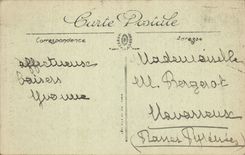 Carte Postale
Correspondance
Adresse
affectueux
baisers
Yvonne
Mademoiselle
M. Bergerot
Navarrenx
Basses Pyrénées